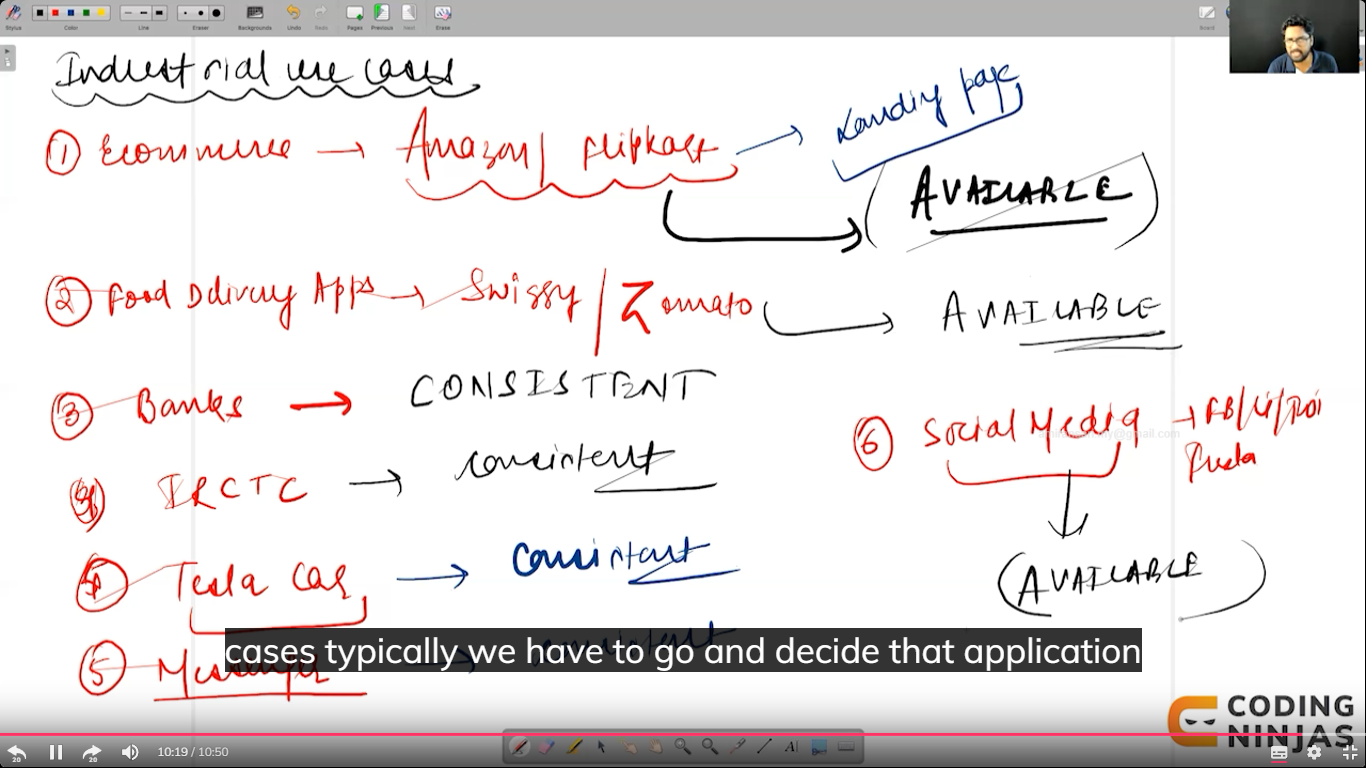 Stylus Color Line Eraser Backgrounds Undo Redo Pages Previous Next Erase Board
Industrial use cases
① Ecommerce → Amazon/ Flipkart → Landing page
(AVAILABLE)
② Food Delivery Apps → Swiggy / Zomato AVAILABLE
③ Banks → CONSISTENT
IRCTC → consistent
Tesla Car → Consistent
⑤ Messenger → consistent
⑥ Social Media → FB/
Insta
(AVAILABLE)
cases typically we have to go and decide that application
CODING
NINJAS
20 20 10:19 / 10:50